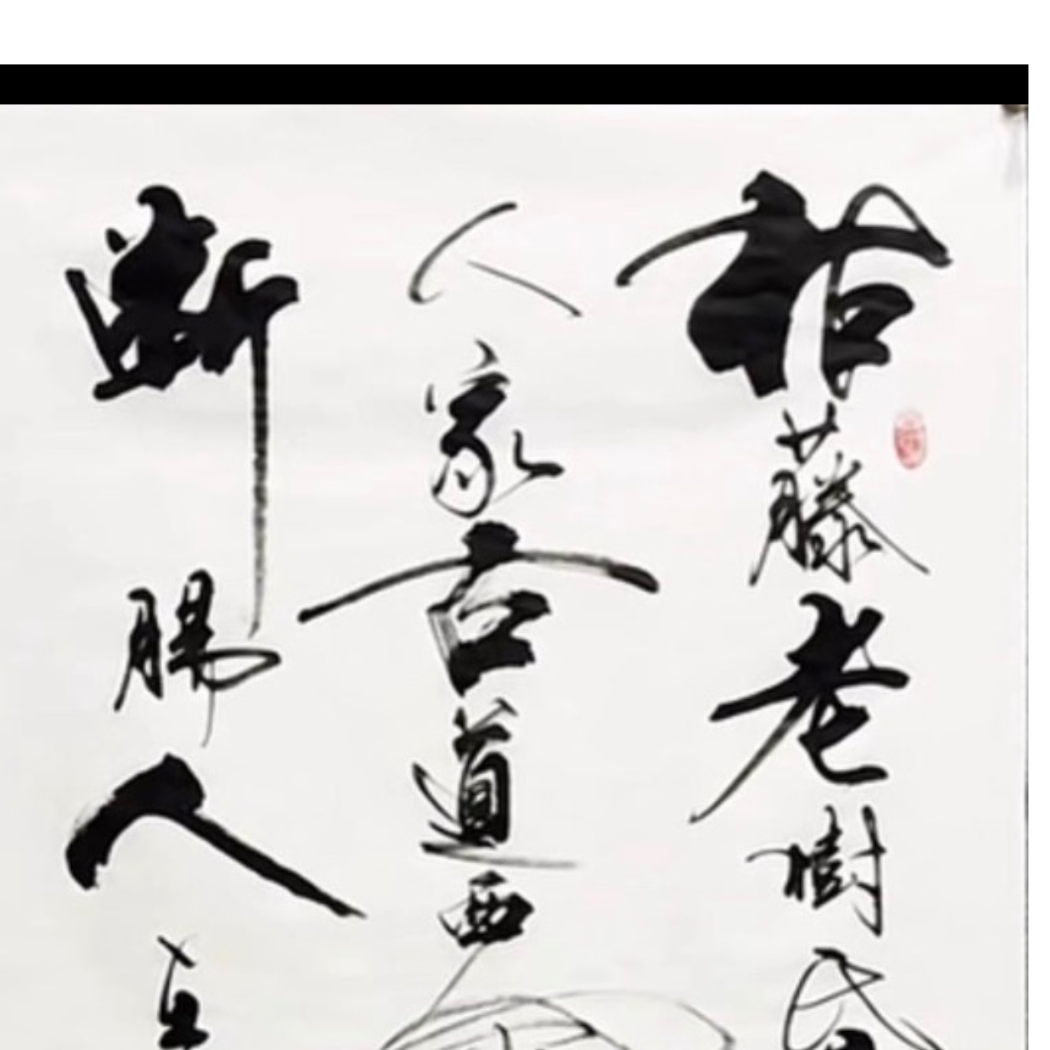 枯藤老樹昏
人家古道西
斷腸人在